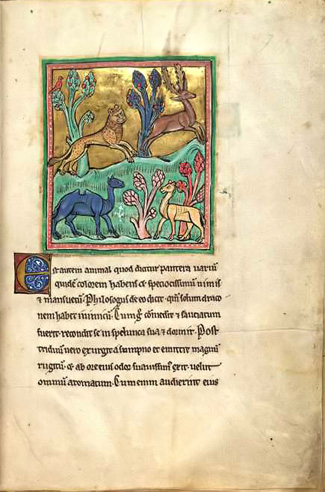 Est autem animal quod dicitur pantera variū
quidē colorem habens ⁊ speciosissimū nimis
⁊ mansuetū. Phisologus de eo dicit. qm̄ solum draco
nem habet inimicū. Cum g̊ comederit ⁊ saciatum
fuerit. recondit se in spelunca sua ⁊ dormit. Post
triduum uero exurgit a sompno ⁊ emittit magnū
rugitū. ⁊ ab ore eius odor suauissim' exit uelut
omnium aromatum. Cum enim audierint eius